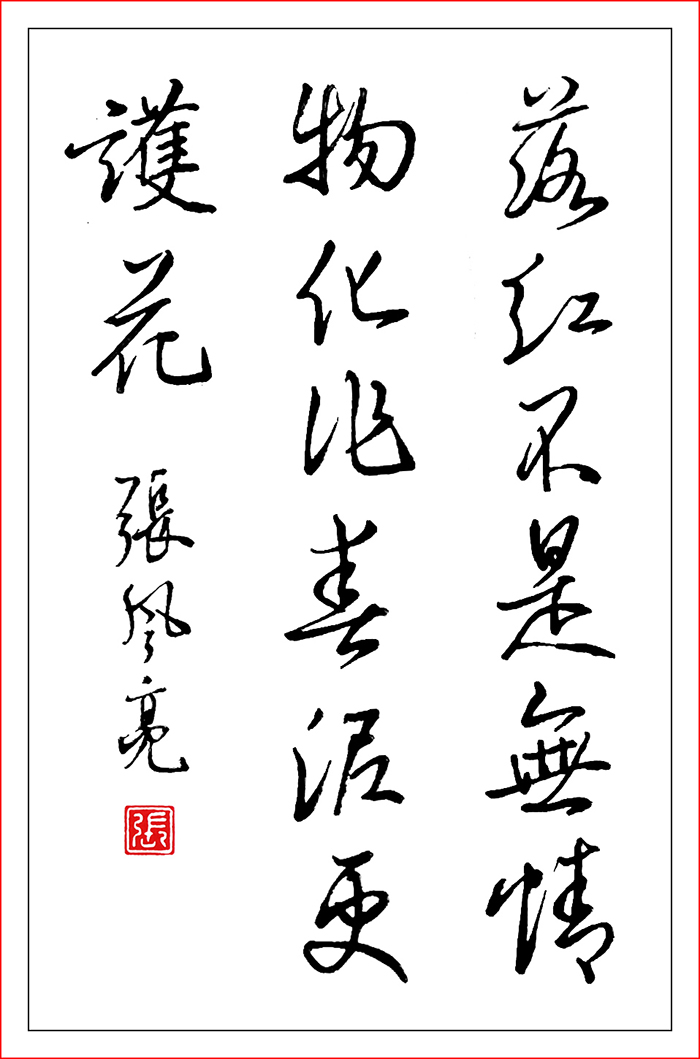 落紅不是無情
物化作春泥更
護花
張風亮
張